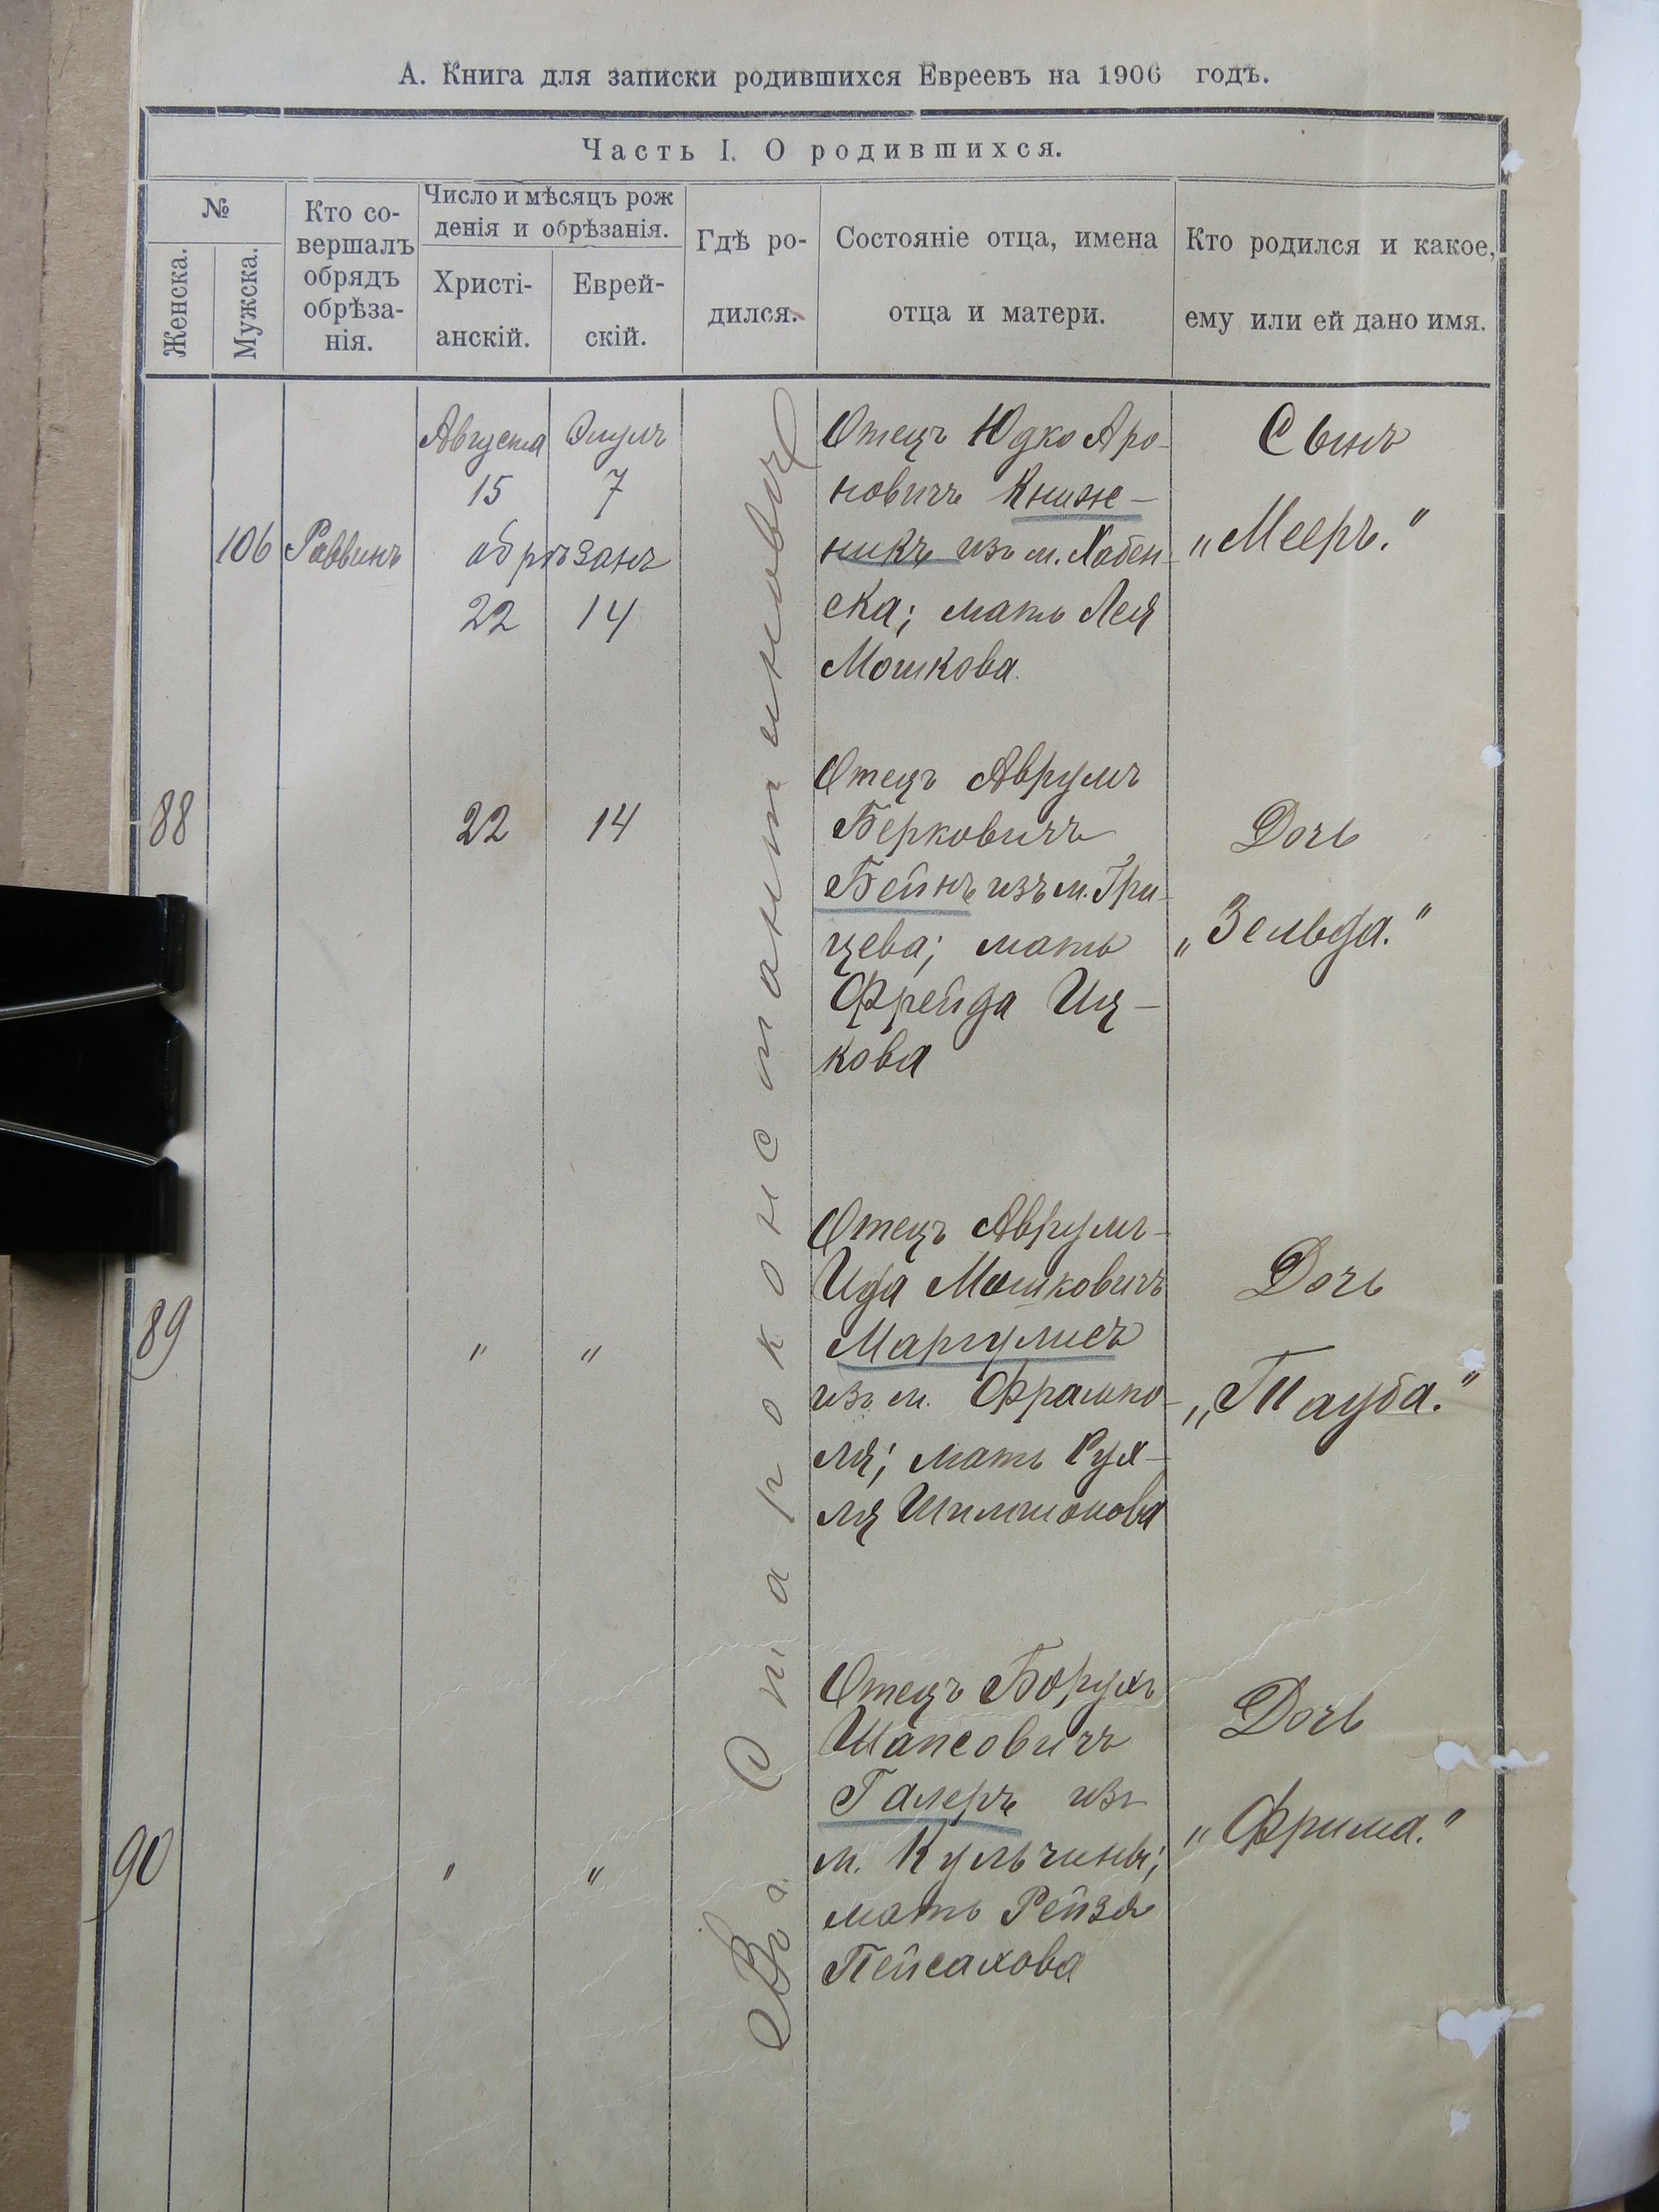 А. Книга для записки родившихся Евреевъ на 1906 годъ.
Часть I. О родившихся.
№
Женска.
Мужска.
Кто со-
вершалъ
обрядъ
обрѣза-
нія.
Число и мѣсяцъ рож
денія и обрѣзанія.
Христі-
анскій.
Еврей-
скій.
Гдѣ ро-
дился.
Состояніе отца, имена
отца и матери.
Кто родился и какое,
ему или ей дано имя.
Въ г. Староконстантиновѣ
106
Раввинъ
Августа
15
Элулъ
7
обрѣзанъ
22
14
Отецъ Юдко Аро-
новичъ Книж-
никъ изъ м. Лабен-
ска; мать Лея
Мошкова.
Сынъ
„Мееръ."
88
22
14
Отецъ Аврумъ
Берковичъ
Бейнъ изъ м. Гри-
цева; мать
Фрейда Иц-
кова
Дочь
„Зельда."
89
"
"
Отецъ Аврумъ-
Ида Мошковичъ
Маргулисъ
изъ м. Фрампо-
ля; мать Рух-
ля Шимшонова
Дочь
„Тауба."
90
"
"
Отецъ Борухъ
Шапсовичъ
Галеръ изъ
м. Кульчины;
мать Рейзя
Пейсахова
Дочь
„Фрима."